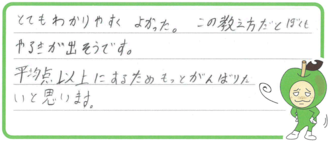 とてもわかりやすく よかった。 この教え方だとぼくも
やる点が出そうです。
平均点以上にするためもっとがんばりた
いと思います。